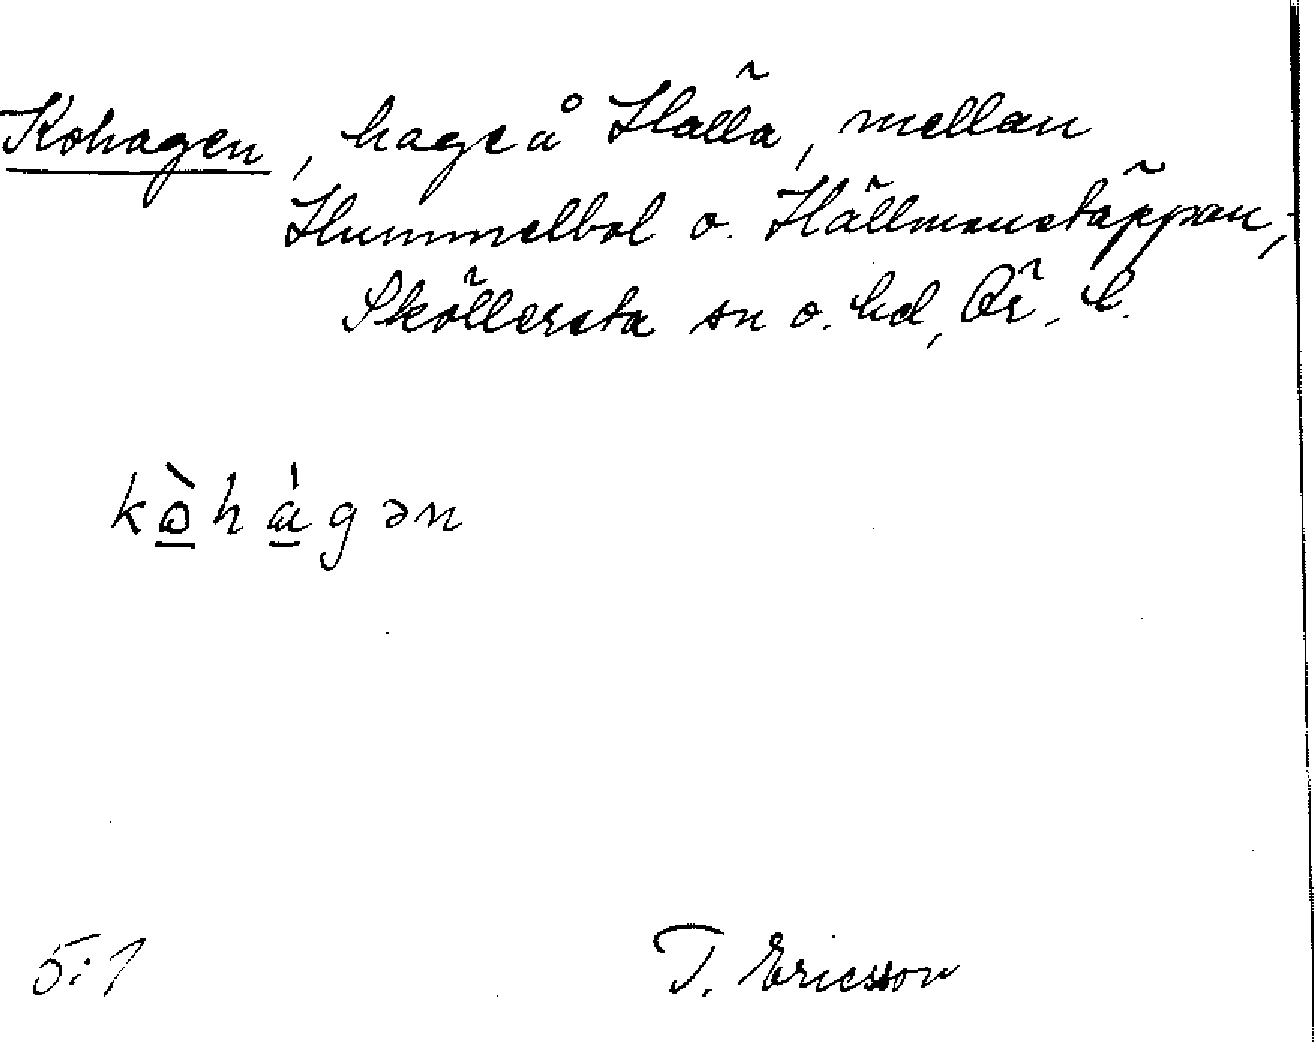 Kohagen, hage å Hälla, mellan
Hummelbol o. Hällmonstäppan,
Sköllersta sn o. hd, Ör. l.
kò̱há̱gən
5:1
T. Ericsson